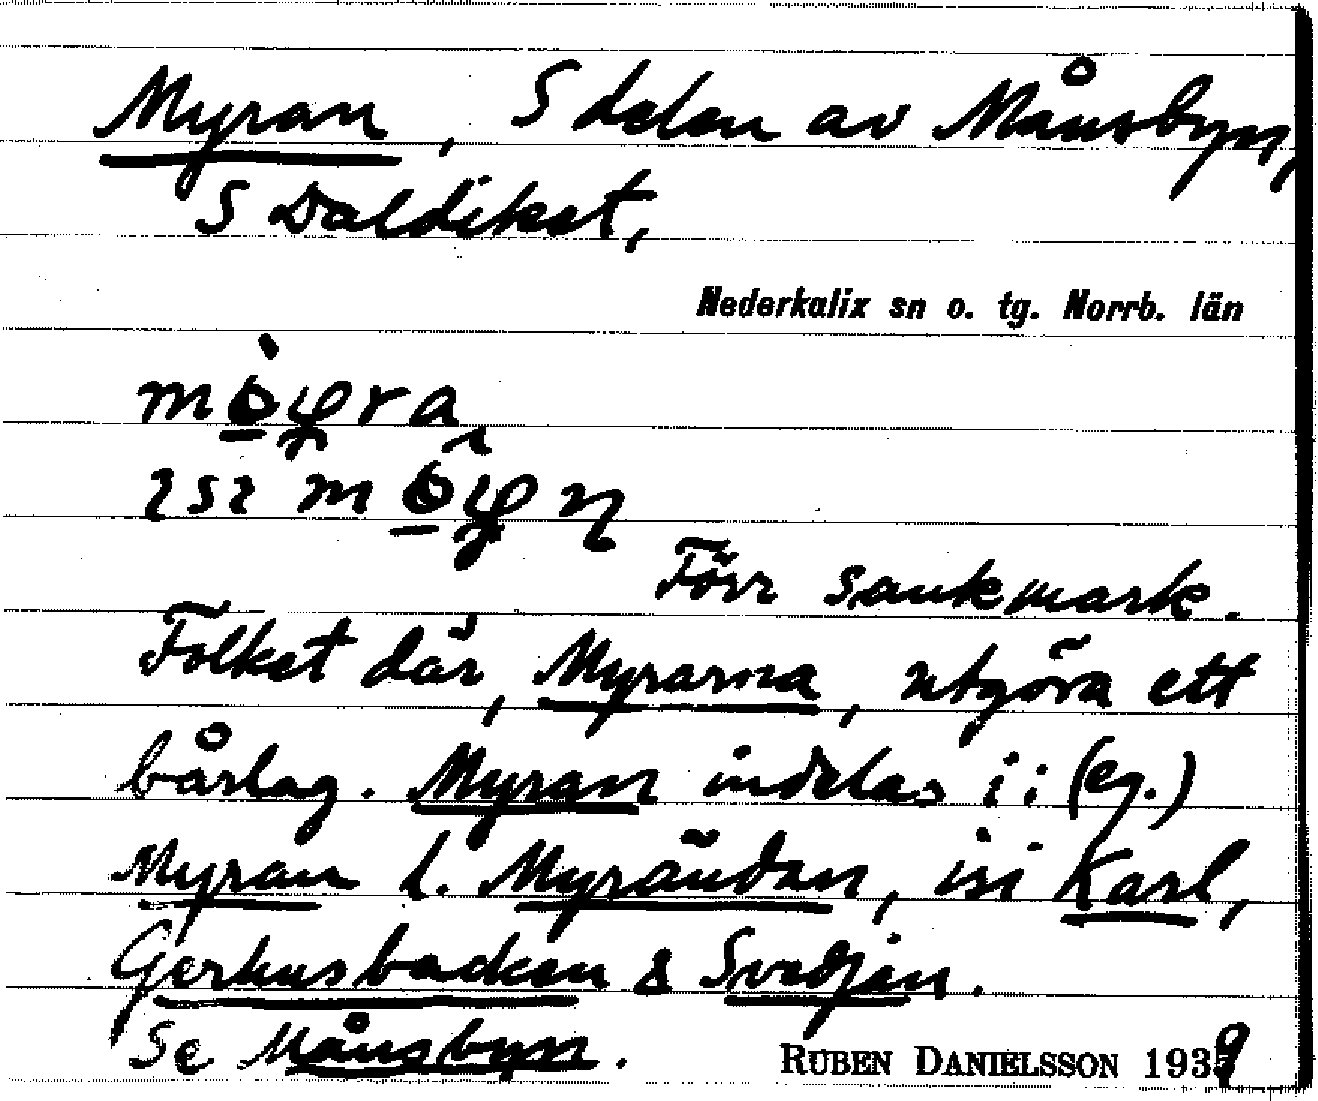 Myran, S delen av Månsbyn,
S Daldiket,
Nederkalix sn o. tg. Norrb. län
Förr sankmark.
Folket där, Myrarna, utgöra ett
bårlag. Myran indelas i: (eg.)
Myran l. Myrändan, isi Karl,
Gerkusbacken & Svedjan.
Se Månsbyn.
RUBEN DANIELSSON 1939